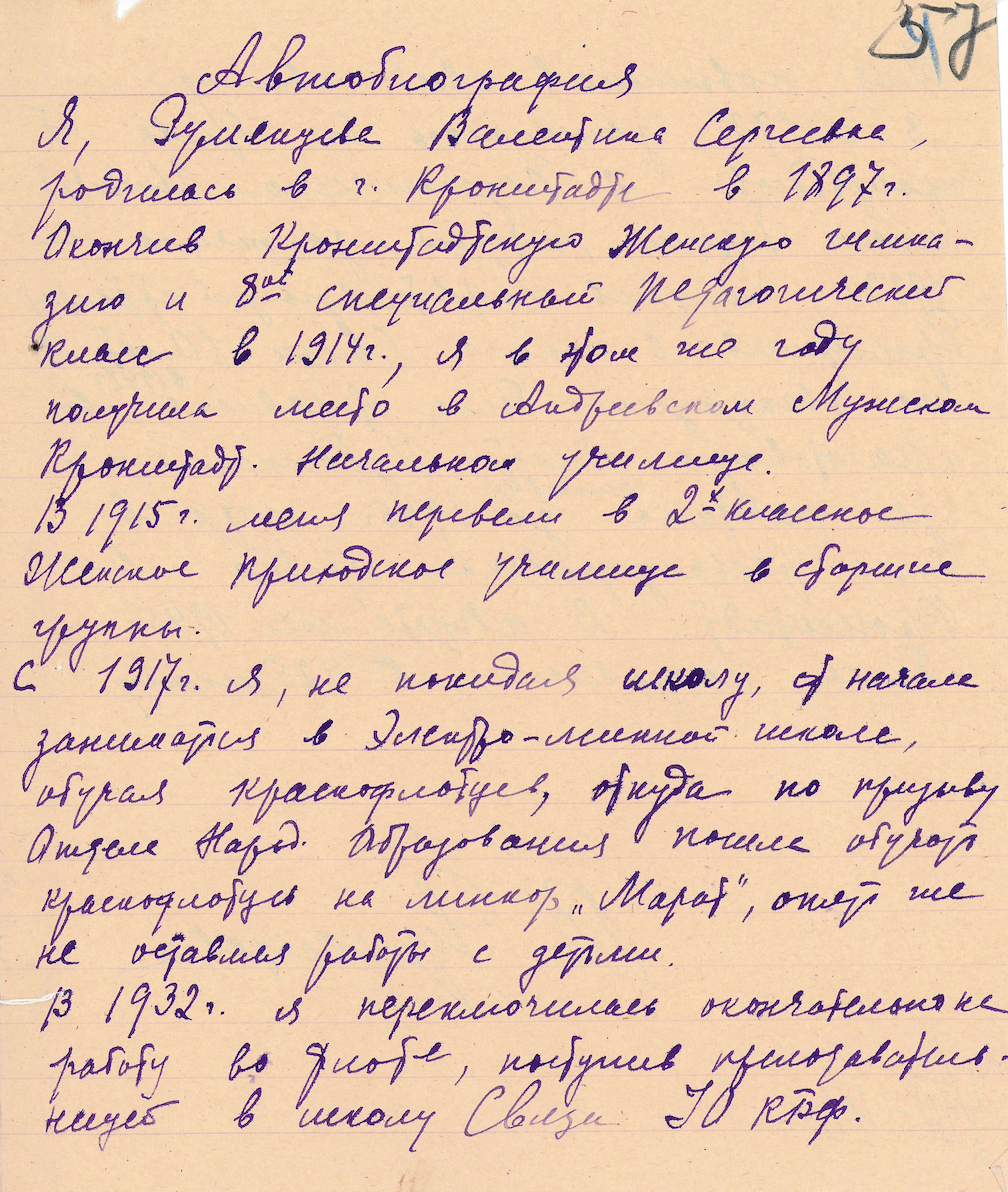 57
Автобиография
Я, Румянцева Валентина Сергеевна,
родилась в г. Кронштадте в 1897 г.
Окончив Кронштадтскую Женскую гимна-
зию и 8ой специальный Педагогический
класс в 1914 г., я в этом же году
получила место в Андреевском Мужском
Кронштадт. Начальном училище.
В 1915 г. меня перевели в 2х классное
Женское Приходское училище в старшие
группы.
С 1917 г. я, не покидая школу, начала
заниматься в Электро-минной школе,
обучая краснофлотцев, откуда по призыву
Отдела Народ. Образования пошла обучать
краснофлотцев на линкор „Марат", опять же
не оставляя работы с детьми.
В 1932 г. я переключилась окончательно на
работу во флоте, поступив преподаватель-
ницей в школу Связи УО КБФ.